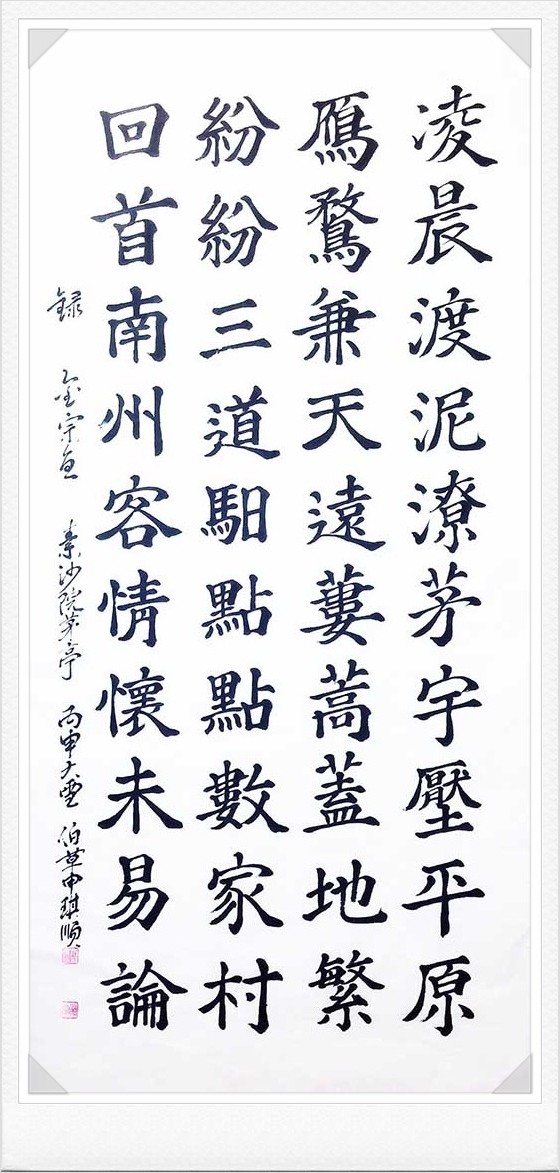 凌晨渡泥潦茅宇壓平原
鴈鶩兼天遠蔞蒿蓋地繁
紛紛三道馹點點數家村
回首南州客情懷未易論
録 金宗直 素沙院茅亭 丙申大雪 伯草申琪順